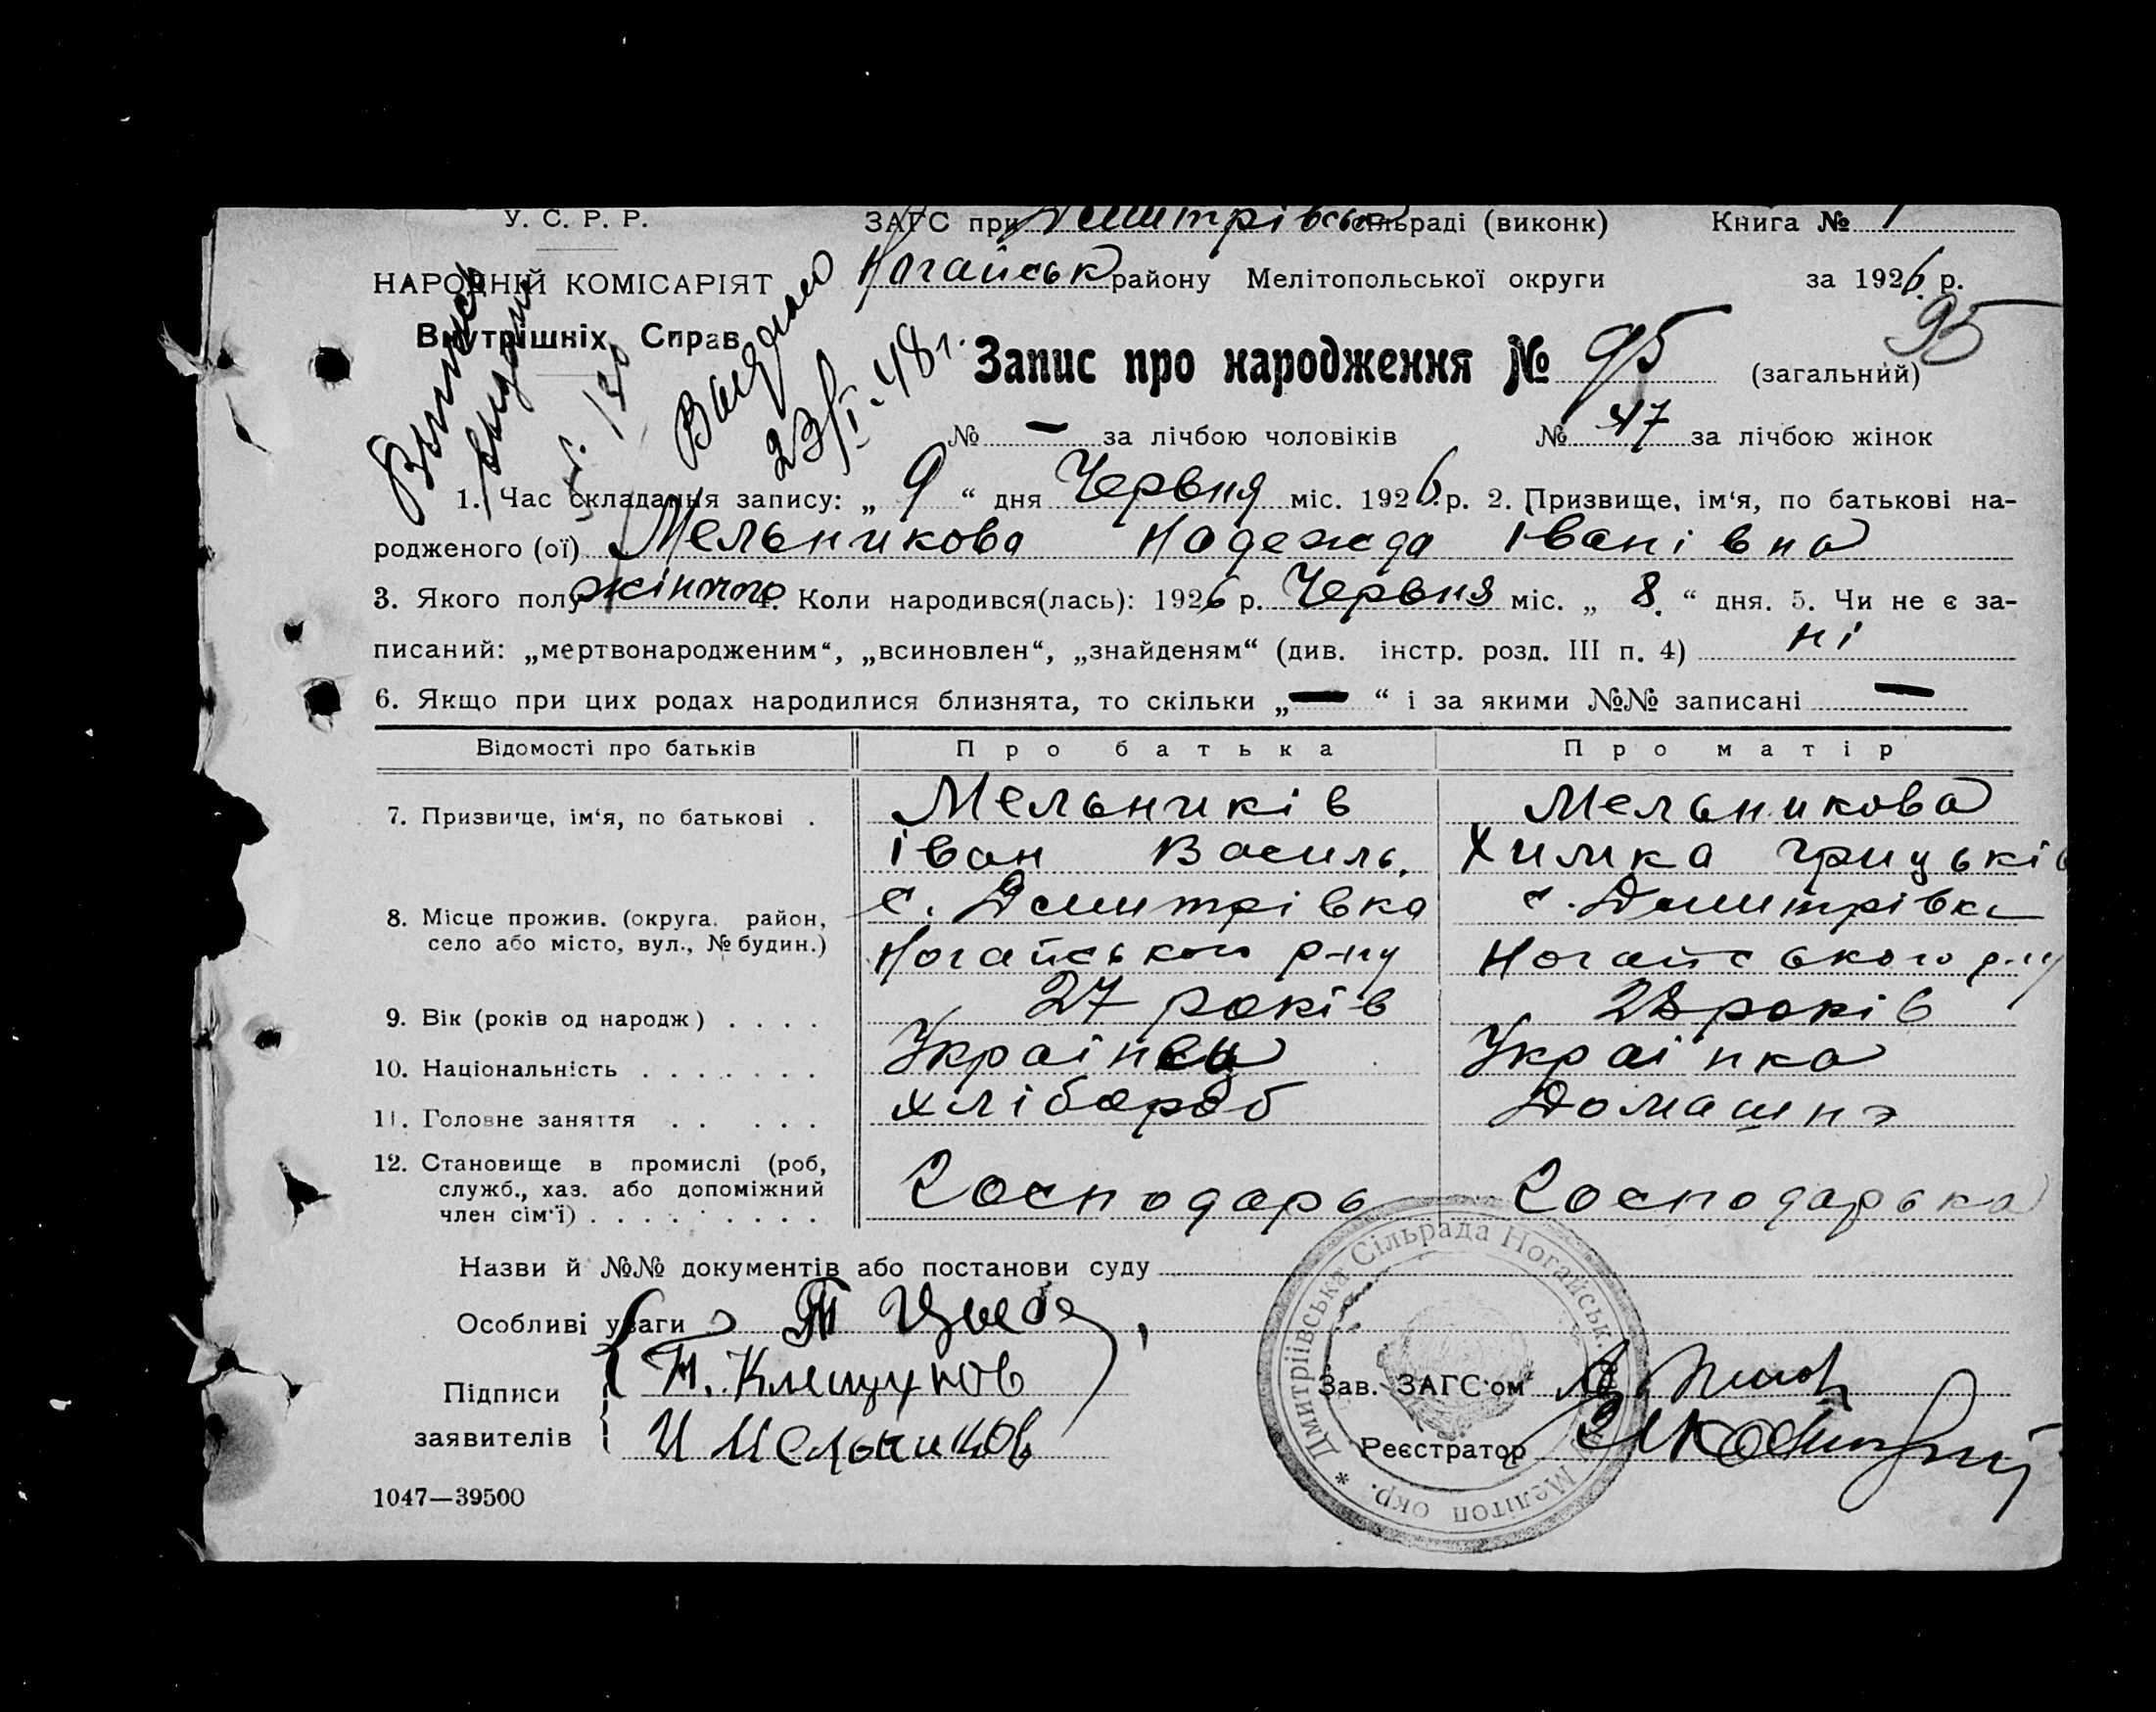 У. С. Р. Р.
ЗАГС при Дмитрівськ сільраді (виконк)
Книга № 1
НАРОДНІЙ КОМІСАРІЯТ
Ногайськ району Мелітопольської округи
за 1926 р.
Внутрішніх Справ
95
Выдано
23/I-48 г.
Запис про народження № 95 (загальний)
№ — за лічбою чоловіків № 47 за лічбою жінок
1. Час складання запису: „ 9 “ дня Червня міс. 1926 р. 2. Призвище, ім‘я, по батькові на-
родженого (ої) Мельникова Надежда Іванівна
3. Якого полу жіночо 4. Коли народився(лась): 1926 р. Червня міс. „ 8. “ дня. 5. Чи не є за-
писаний: „мертвонародженим“, „всиновлен“, „знайденям“ (див. інстр. розд. III п. 4) ні
6. Якщо при цих родах народилися близнята, то скільки „ — “ і за якими №№ записані —
Відомості про батьків
Про батька
Про матір
7. Призвище, ім‘я, по батькові .
Мельників
Іван Василь.
Мельникова
Химка Грицьків
8. Місце прожив. (округа. район,
село або місто, вул., № будин.)
с. Дмитрівка
Ногайського р-ну
с. Дмитрівка
Ногайського р-ну
9. Вік (років од народж) . . . .
27 років
28 років
10. Національність . . . . . . .
Українец
Українка
11. Головне заняття . . . . .
хлібороб
Домашнэ
12. Становище в промислі (роб,
служб., хаз. або допоміжний
член сім‘ї) . . . . . . . . .
Господарь
Господарька
Назви й №№ документів або постанови суду
Особливі уваги
Підписи
заявителів
И Мельников
Зав. ЗАГС‘ом
Реєстратор
Дмитріївська Сільрада Ногайськ. Мелітоп окр. *
1047—39500